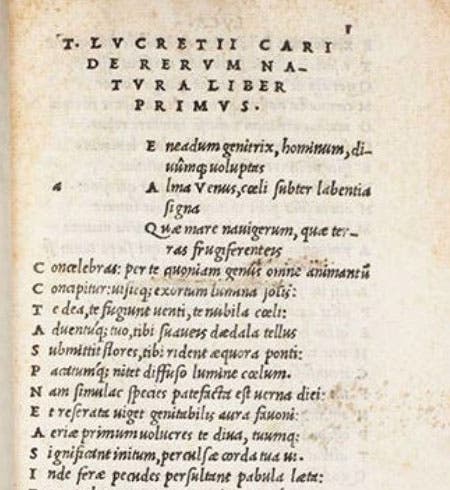 1
T. LVCRETII CARI
DE RERVM NA–
TVRA LIBER
PRIMVS.
E neadum genitrix, hominum, di–
uûmq; uoluptas
a A lma Venus, cœli subter labentia
signa
Q uæ mare nauigerum, quæ ter–
ras frugiferenteis
C oncelebras: per te quoniam genus omne animantũ
C oncipitur: uisitq; exortum lumina solis:
T e dea, te fugiunt uenti, te nubila cœli:
A duentuq; tuo, tibi suaueis dædala tellus
S ubmittit flores, tibi rident æquora ponti:
P acatumq; nitet diffuso lumine cœlum.
N am simulac species patefacta est uerna diei:
E t reserata uiget genitabilis aura fauoni:
A eriæ primum uolucres te diua, tuumq;
S ignificant initum, perculsæ corda tua ui.
I nde feræ pecudes persultant pabula læta: